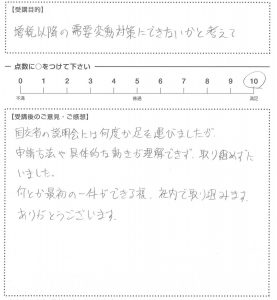 【受講目的】
増税以降の需要変動対策にできないかと考えて
― 点数に○をつけて下さい
0 1 2 3 4 5 6 7 8 9 10
不満 普通 満足
【受講後のご意見・ご感想】
同志者の説明会には何度か足を運びましたが、
申請方法や具体的な動きが理解できず、取り組めずに
いました。
何とか最初の一件ができる様、社内で取り組みます。
ありがとうございます。